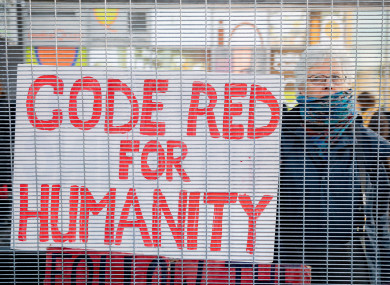 CODE RED
FOR
HUMANITY